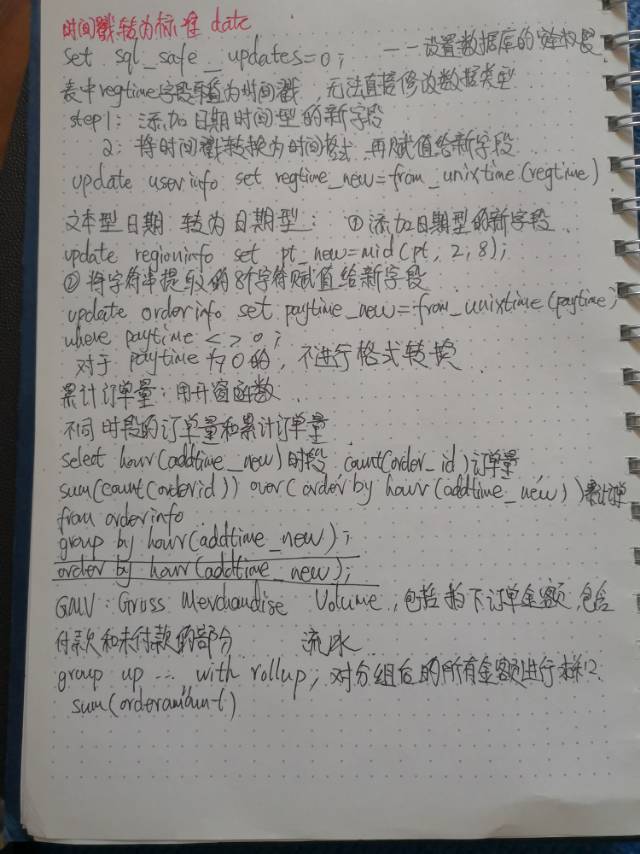 时间戳转为标准 date
set sql_safe_updates=0; ——设置数据库的安全权限
表中regtime字段存为时间戳,无法直接修改数据类型
step1:添加日期时间型的新字段
2:将时间戳转换为时间格式,再赋值给新字段
update userinfo set regtime_new=from_unixtime(regtime)
文本型日期 转为日期型:①添加日期型的新字段
update regioninfo set pt_new=mid(pt,2,8);
②将字符串提取的8个字符赋值给新字段
update orderinfo set paytime_new=from_unixtime(paytime)
where paytime <>0;
对于paytime为0的,不进行格式转换
累计订单量:用开窗函数
不同时段的订单量和累计订单量
select hour(addtime_new)时段 count(order_id)订单量,
sum(count(orderid)) over(order by hour(addtime_new))累计订单
from orderinfo
group by hour(addtime_new);
order by hour(addtime_new);
GMV:Gross Merchandise Volume,包括拍下订单金额,包含
付款和未付款的部分 流水
group up ... with rollup;对分组后的所有金额进行
sum(orderamount)